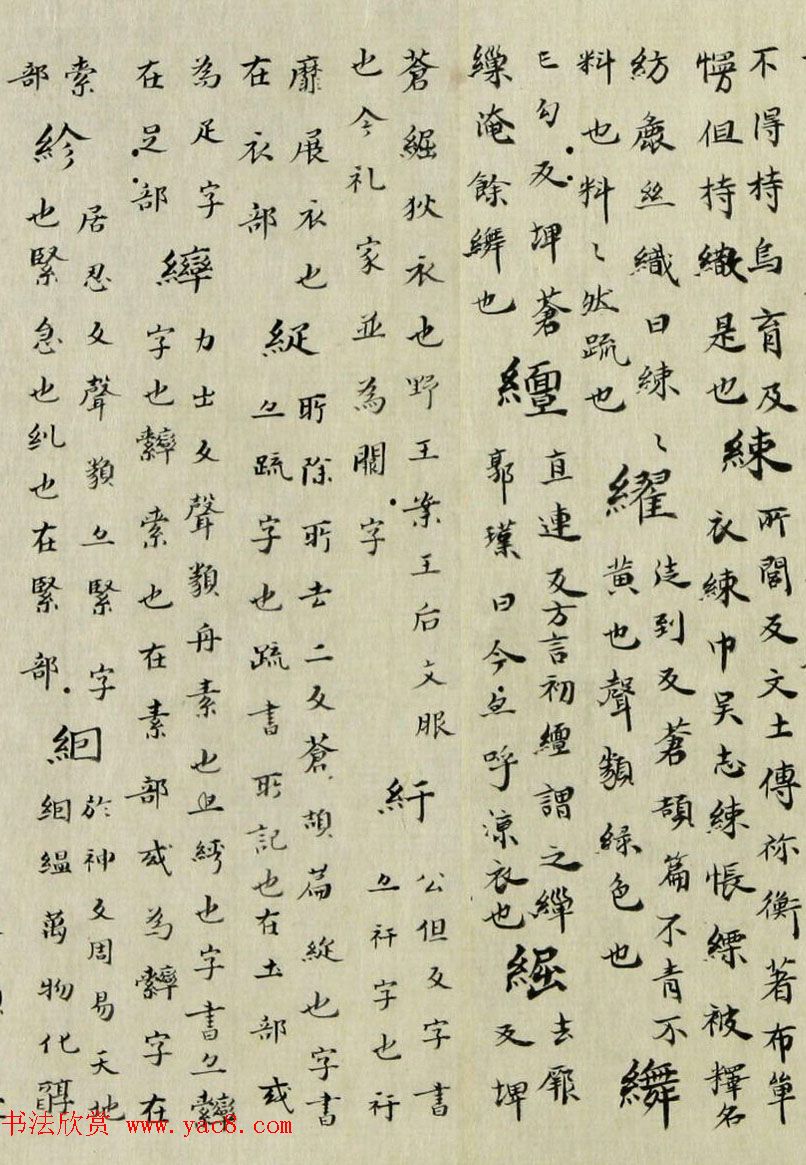 不得持烏育及
但持緻是也
綀
所閭反文士傳祢衡著布單
衣綀巾吳志綀帳縹被釋名
紡麁絲織曰綀〻
料也料〻然疏也
徒到反蒼頡篇不青不
黃也聲類綠色也
亡勾反埤蒼
淹餘也
繵
直連反方言初繵謂之繟
郭璞曰今亦呼涼衣也
去厥反埤
蒼狄衣也野王案王后文服
也今礼家並為字
公但反字書
亦衦字也衦
靡展衣也
在衣部
所除所去二反蒼頡篇也字書
亦疏字也疏書所記也在部或
為足字
在足部
繂
力出反聲類舟素也字書亦
字也索也在素部或為字在
索
部
紾
居忍反聲類亦緊字
也緊急也糺也在緊部
絪
於神反周易天地
絪縕萬物化
书法欣赏 www.yac8.com